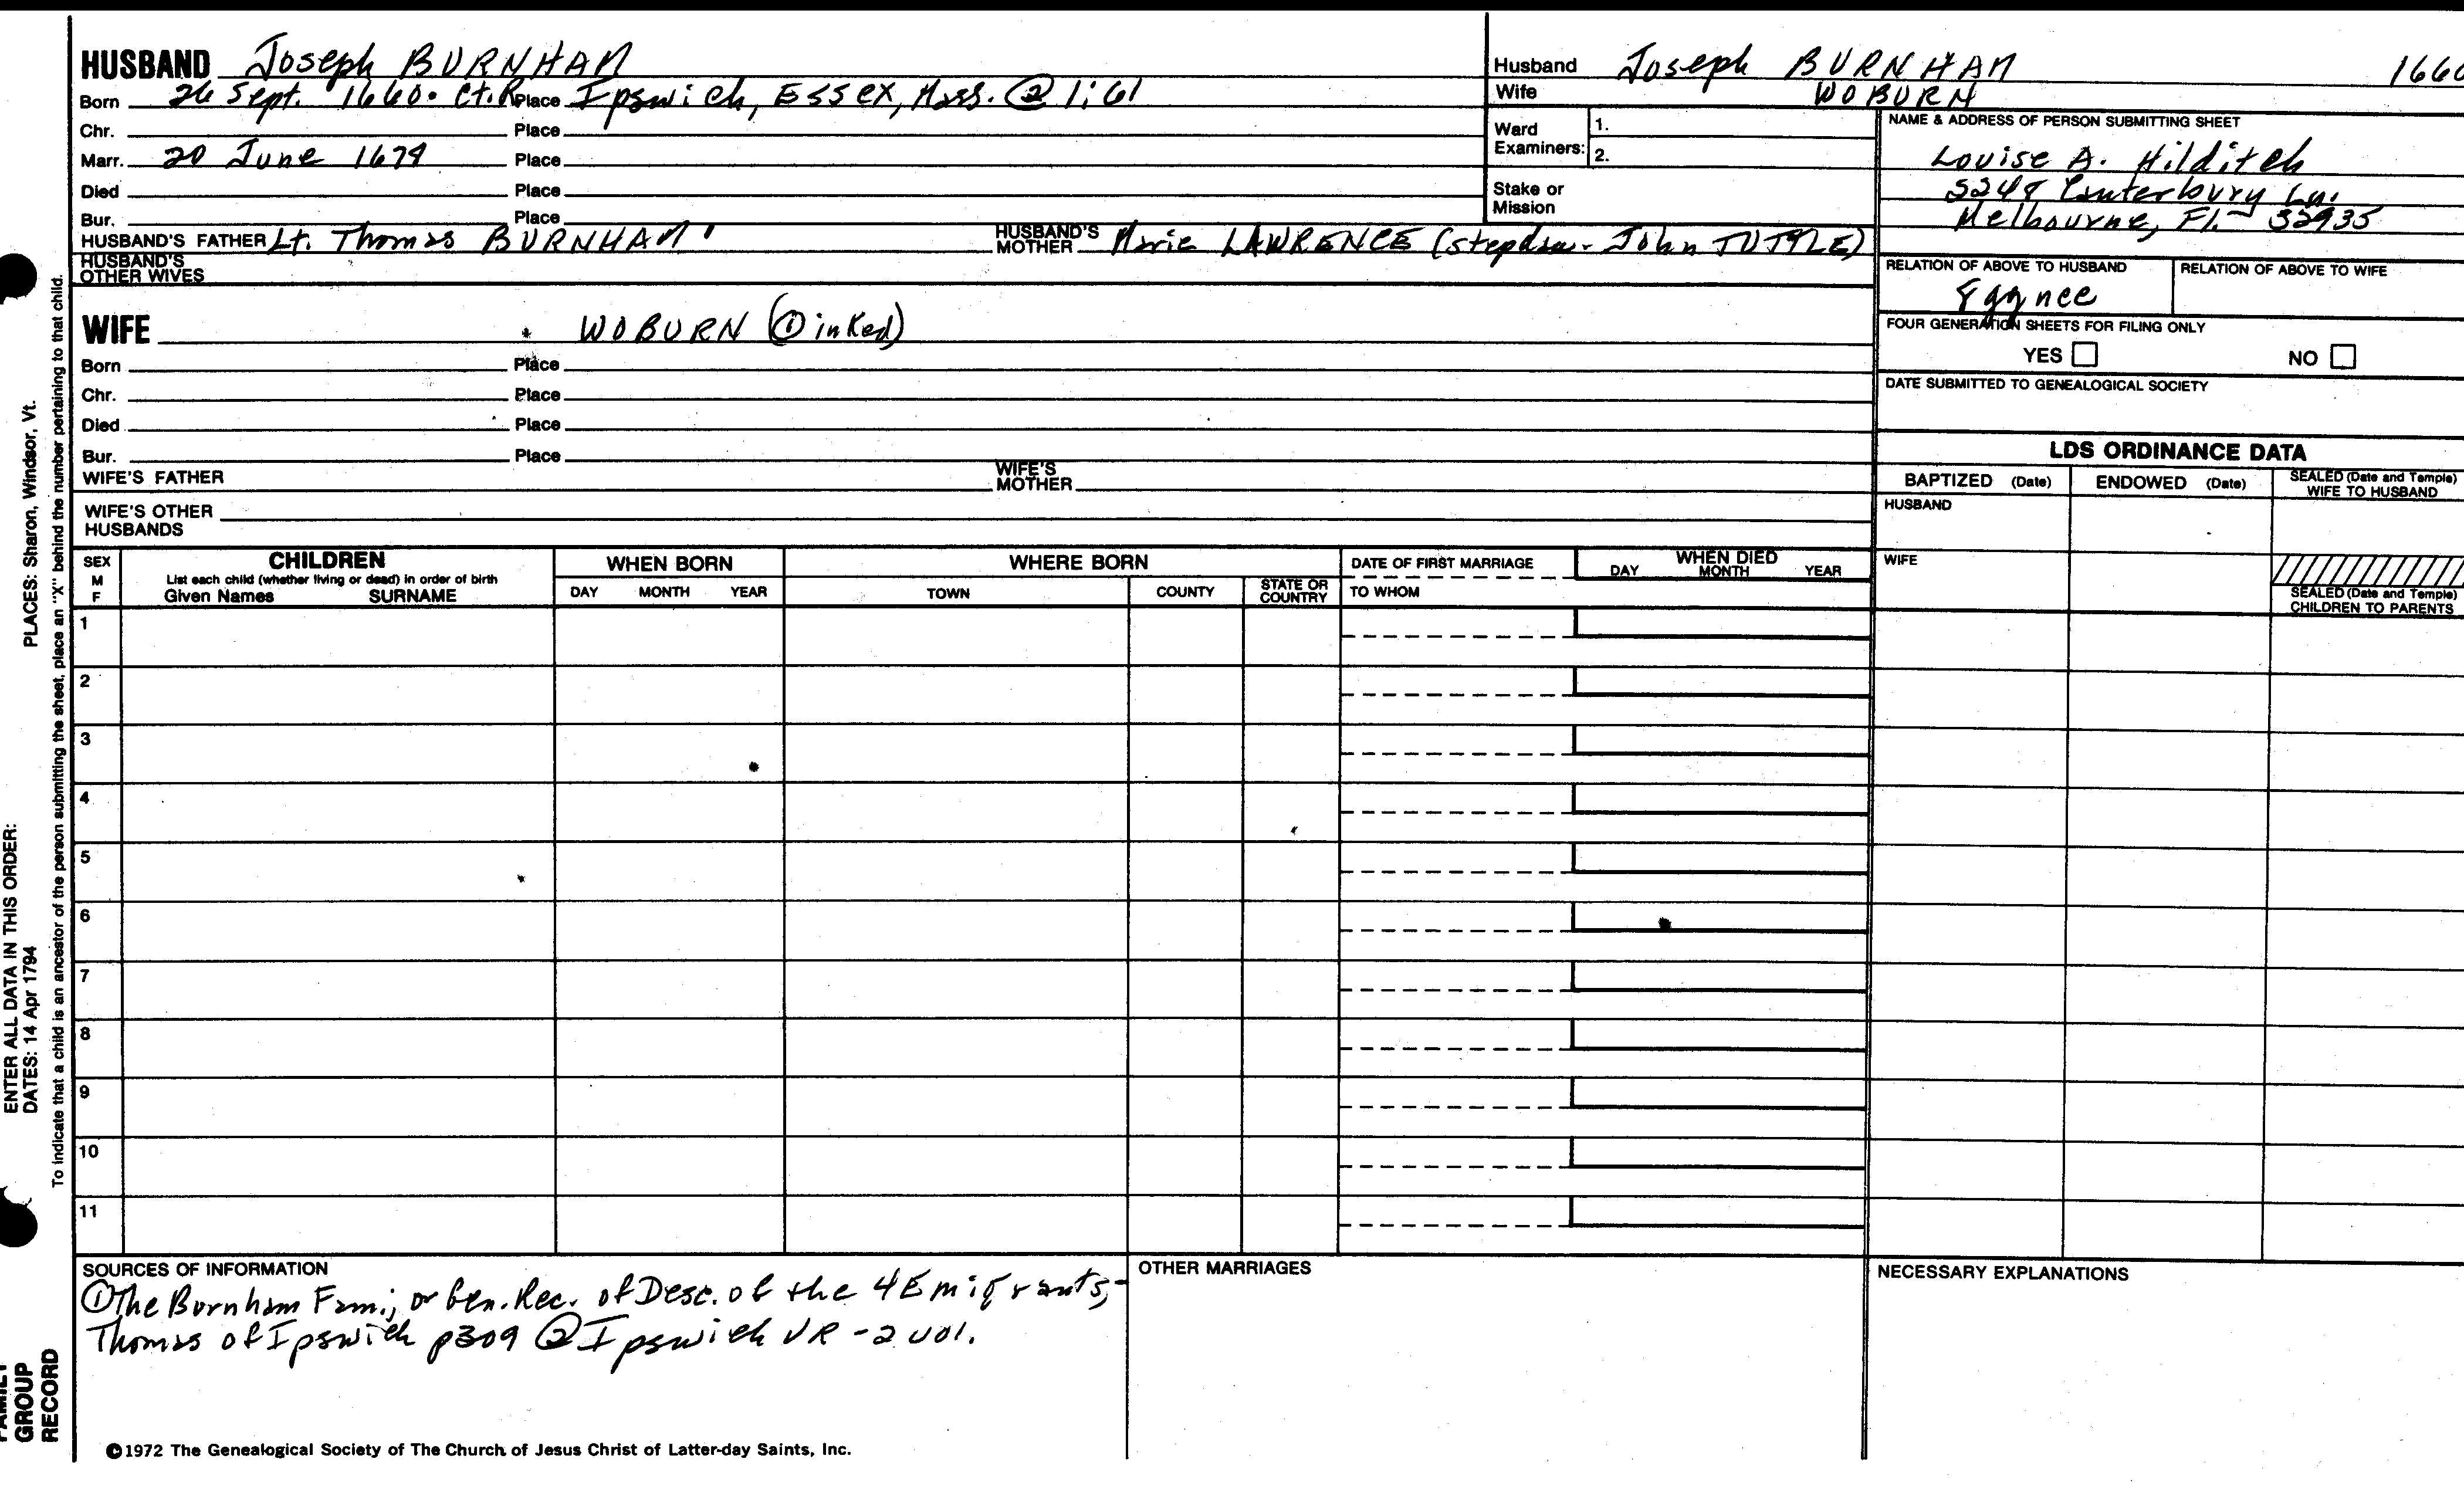 HUSBAND Joseph BURNHAM
Born 26 Sept. 1660. Ct.R Place Ipswich, Essex, Mass. ② 1:61
Chr. Place
Marr. 20 June 1679 Place
Died Place
Bur. Place
HUSBAND'S FATHER Lt. Thomas BURNHAM HUSBAND'S MOTHER Marie LAWRENCE (stepdau- John TUTTLE)
HUSBAND'S OTHER WIVES
WIFE WOBURN (① inked)
Born Place
Chr. Place
Died Place
Bur. Place
WIFE'S FATHER WIFE'S MOTHER
WIFE'S OTHER HUSBANDS
Husband Joseph BURNHAM 1660
Wife WOBURN
Ward Examiners: 1.
2.
Stake or Mission
NAME & ADDRESS OF PERSON SUBMITTING SHEET
Louise A. Hilditch
Canterbury Ln.
Melbourne, Fl. - 32935
RELATION OF ABOVE TO HUSBAND RELATION OF ABOVE TO WIFE
8 gg nce
FOUR GENERATION SHEETS FOR FILING ONLY
YES NO
DATE SUBMITTED TO GENEALOGICAL SOCIETY
LDS ORDINANCE DATA
BAPTIZED (Date) ENDOWED (Date) SEALED (Date and Temple) WIFE TO HUSBAND
HUSBAND
WIFE
SEALED (Date and Temple) CHILDREN TO PARENTS
SEX M F
CHILDREN
List each child (whether living or dead) in order of birth
Given Names SURNAME
WHEN BORN
DAY MONTH YEAR
WHERE BORN
TOWN COUNTY STATE OR COUNTRY
DATE OF FIRST MARRIAGE
TO WHOM
WHEN DIED
DAY MONTH YEAR
1
2
3
4
5
6
7
8
9
10
11
SOURCES OF INFORMATION
①The Burnham Fam; or Gen. Rec. of Desc. of the 4 Emigrants,-
Thomas of Ipswich p309 ② Ipswich VR - 2 vol.
OTHER MARRIAGES
NECESSARY EXPLANATIONS
©1972 The Genealogical Society of The Church of Jesus Christ of Latter-day Saints, Inc.
FAMILY GROUP RECORD
ENTER ALL DATA IN THIS ORDER:
DATES: 14 Apr 1794 PLACES: Sharon, Windsor, Vt.
To indicate that a child is an ancestor of the person submitting the sheet, place an "X" behind the number pertaining to that child.